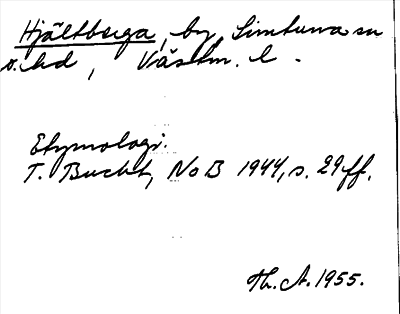 Hjältberga, by, Simtuna sn
o. hd, Västm. l.
Etymologi:
T. Bucht, NoB 1944, s. 29 ff.
Th. A. 1955.